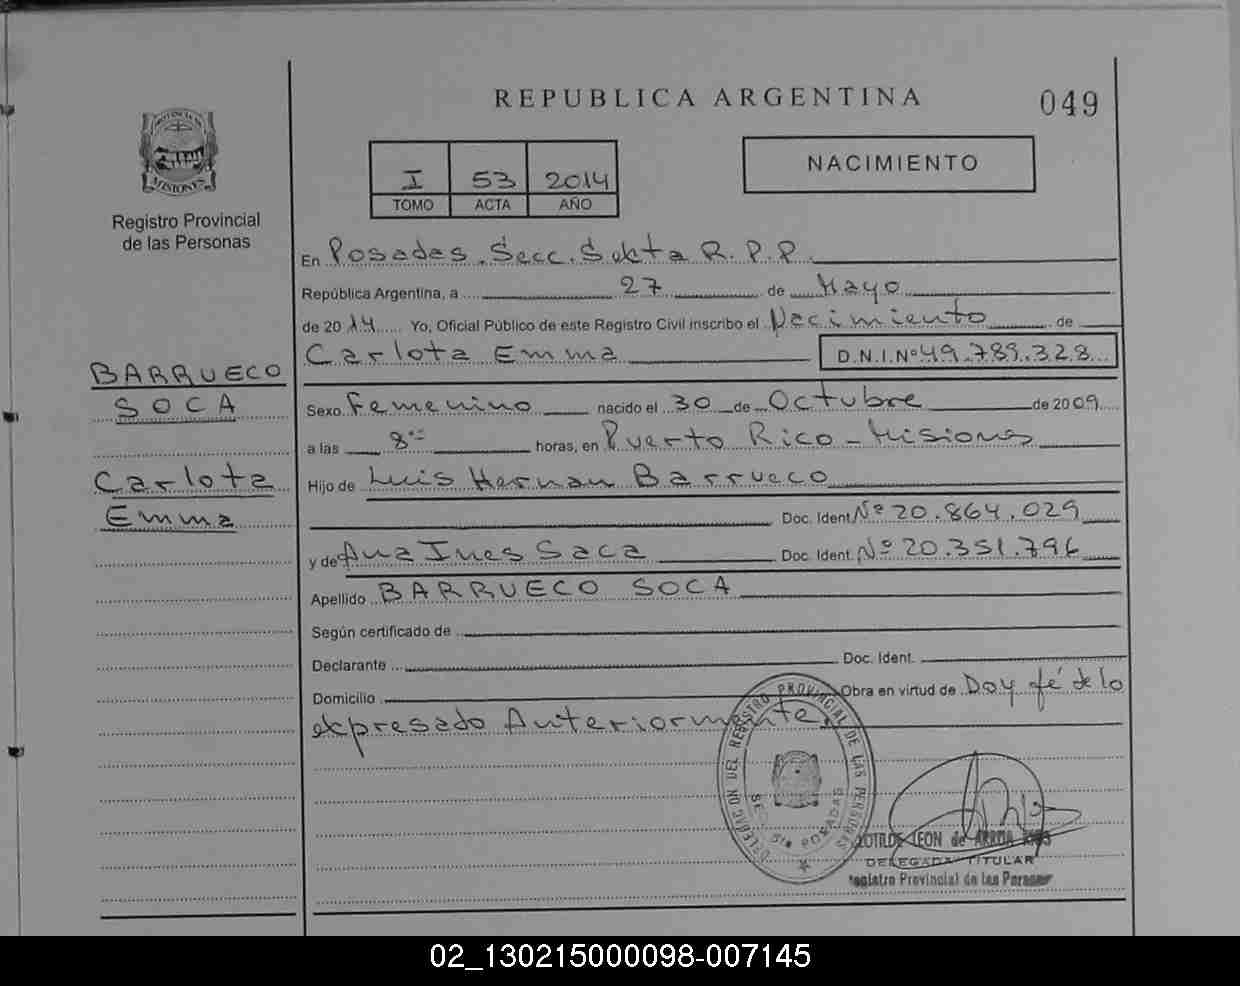 REPUBLICA ARGENTINA
049
PROVINCIA DE
MISIONES
Registro Provincial
de las Personas
I 53 2014
TOMO ACTA AÑO
NACIMIENTO
En Posadas. Secc. Sexta R.P.P.
República Argentina, a 27 de Mayo
de 2014 Yo, Oficial Público de este Registro Civil inscribo el Nacimiento de
Carlota Emma D.N.I.Nº 49.789.328
BARRUECO
SOCA
Carlota
Emma
Sexo Femenino nacido el 30 de Octubre de 2009
a las 8:00 horas, en Puerto Rico - Misiones
Hijo de Luis Hernan Barrueco
Doc. Ident Nº 20.864.029
y de Ana Ines Saca Doc. Ident. Nº 20.351.796
Apellido BARRUECO SOCA
Según certificado de
Declarante Doc. Ident.
Domicilio Obra en virtud de Doy fé de lo
expresado Anteriormente.
DELEGACION DEL REGISTRO PROVINCIAL DE LAS PERSONAS
SEC. 6ta POSADAS
LEON de
DELEGADA TITULAR
Registro Provincial de las Personas
02_130215000098-007145